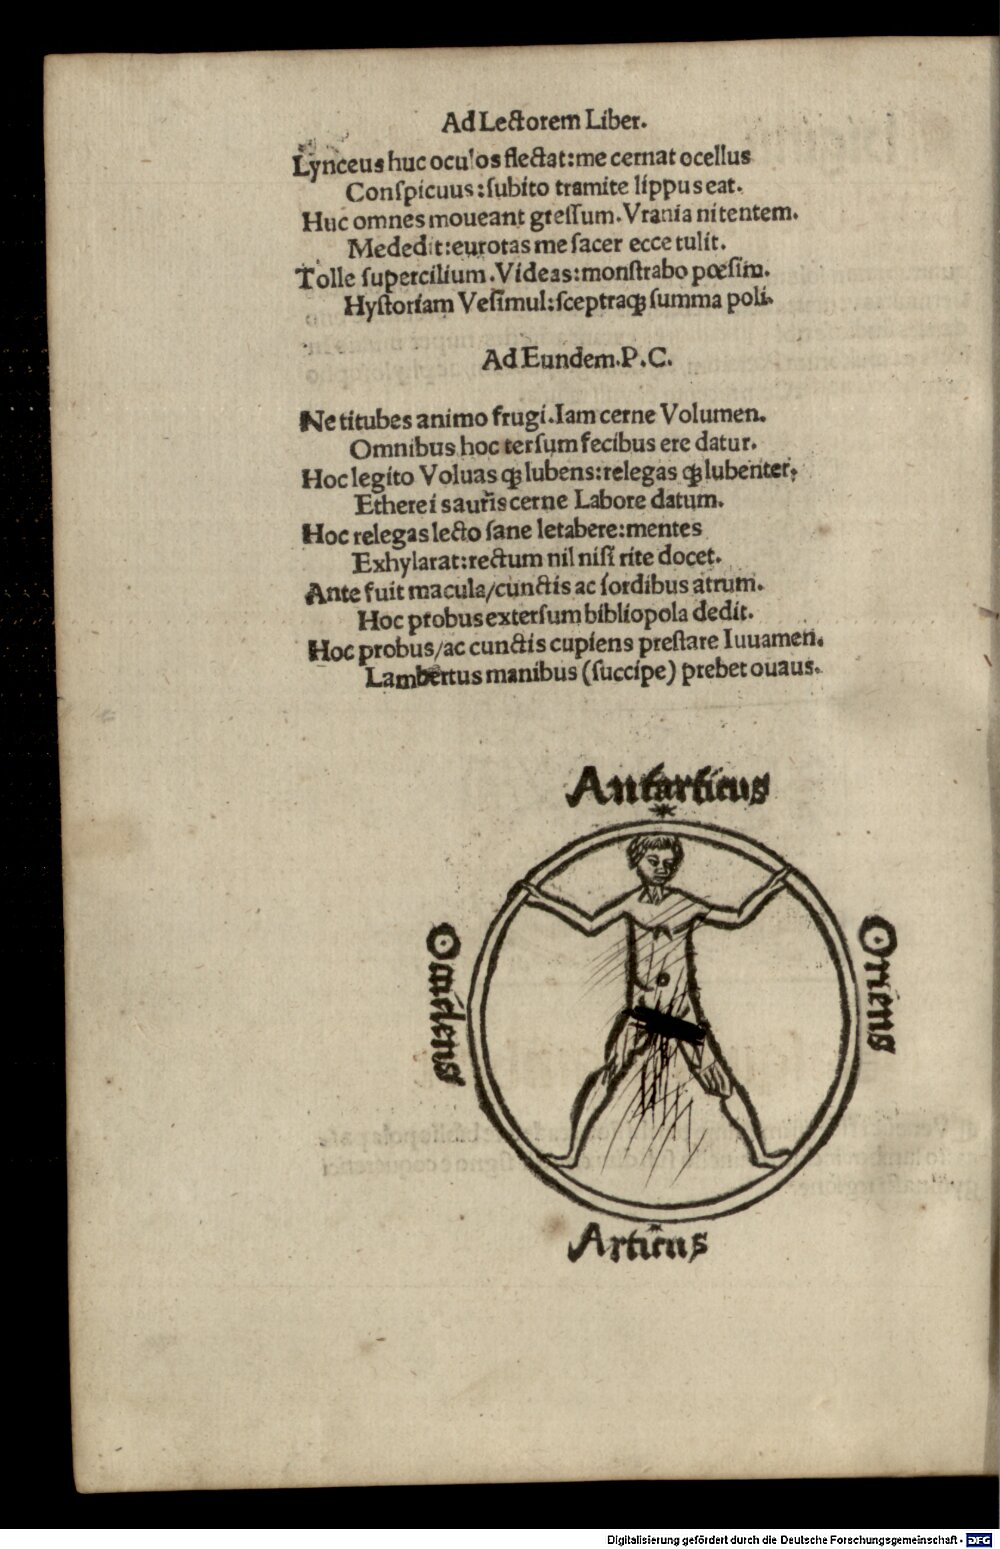 Ad Lectorem Liber.
Lynceus huc oculos flectat:me cernat ocellus
Conſpicuus:ſubito tramite lippus eat.
Huc omnes moueant greſſum.Vrania nitentem.
Mededit:eurotas me ſacer ecce tulit.
Tolle ſupercilium.Videas:monſtrabo poeſim.
Hyſtoriam Veſimul:ſceptraqꝫ ſumma poli.
Ad Eundem.P.C.
Ne titubes animo frugi.Iam cerne Volumen.
Omnibus hoc terſum fecibus ere datur.
Hoc legito Voluas qꝫ lubens:relegas qꝫ lubenter.
Etherei cerne Labore datum.
Hoc relegas lecto ſane letabere:mentes
Exhylarat:rectum nil niſi rite docet.
Ante fuit macula/cunctis ac ſordibus atrum.
Hoc probus exterſum bibliopola dedit.
Hoc probus/ac cunctis cupiens preſtare Iuuamen.
Lambertus manibus (ſuccipe) prebet ouaus.
Antarticus
Occidens
Oriens
Articus
Digitalisierung gefördert durch die Deutsche Forschungsgemeinschaft - DFG